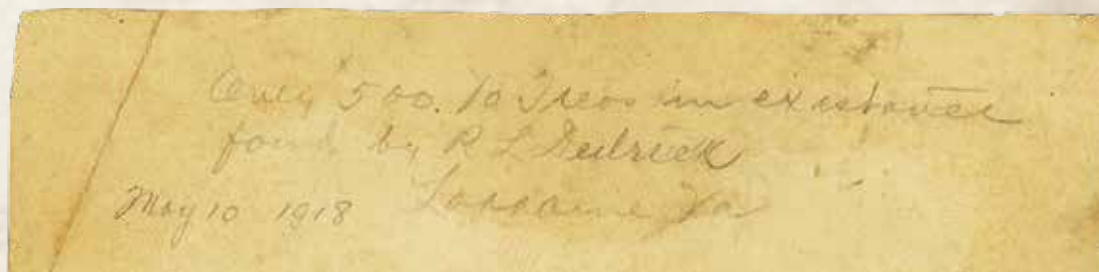 Only 500.00 Treas in existance
found by R L Dedrick
May 10 1918 Lorraine Va